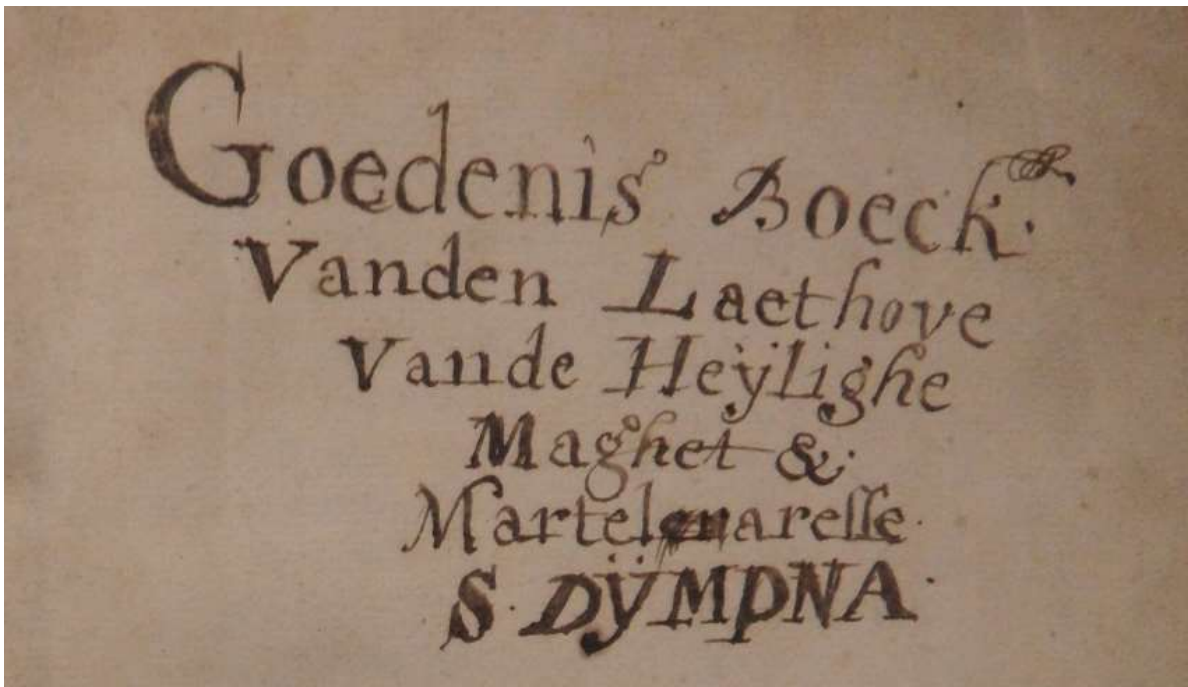 Goedenis Boeck.
Vanden Laethove
Vande Heÿlighe
Maghet &.
Martelenaresse.
S. DŸMPNA.